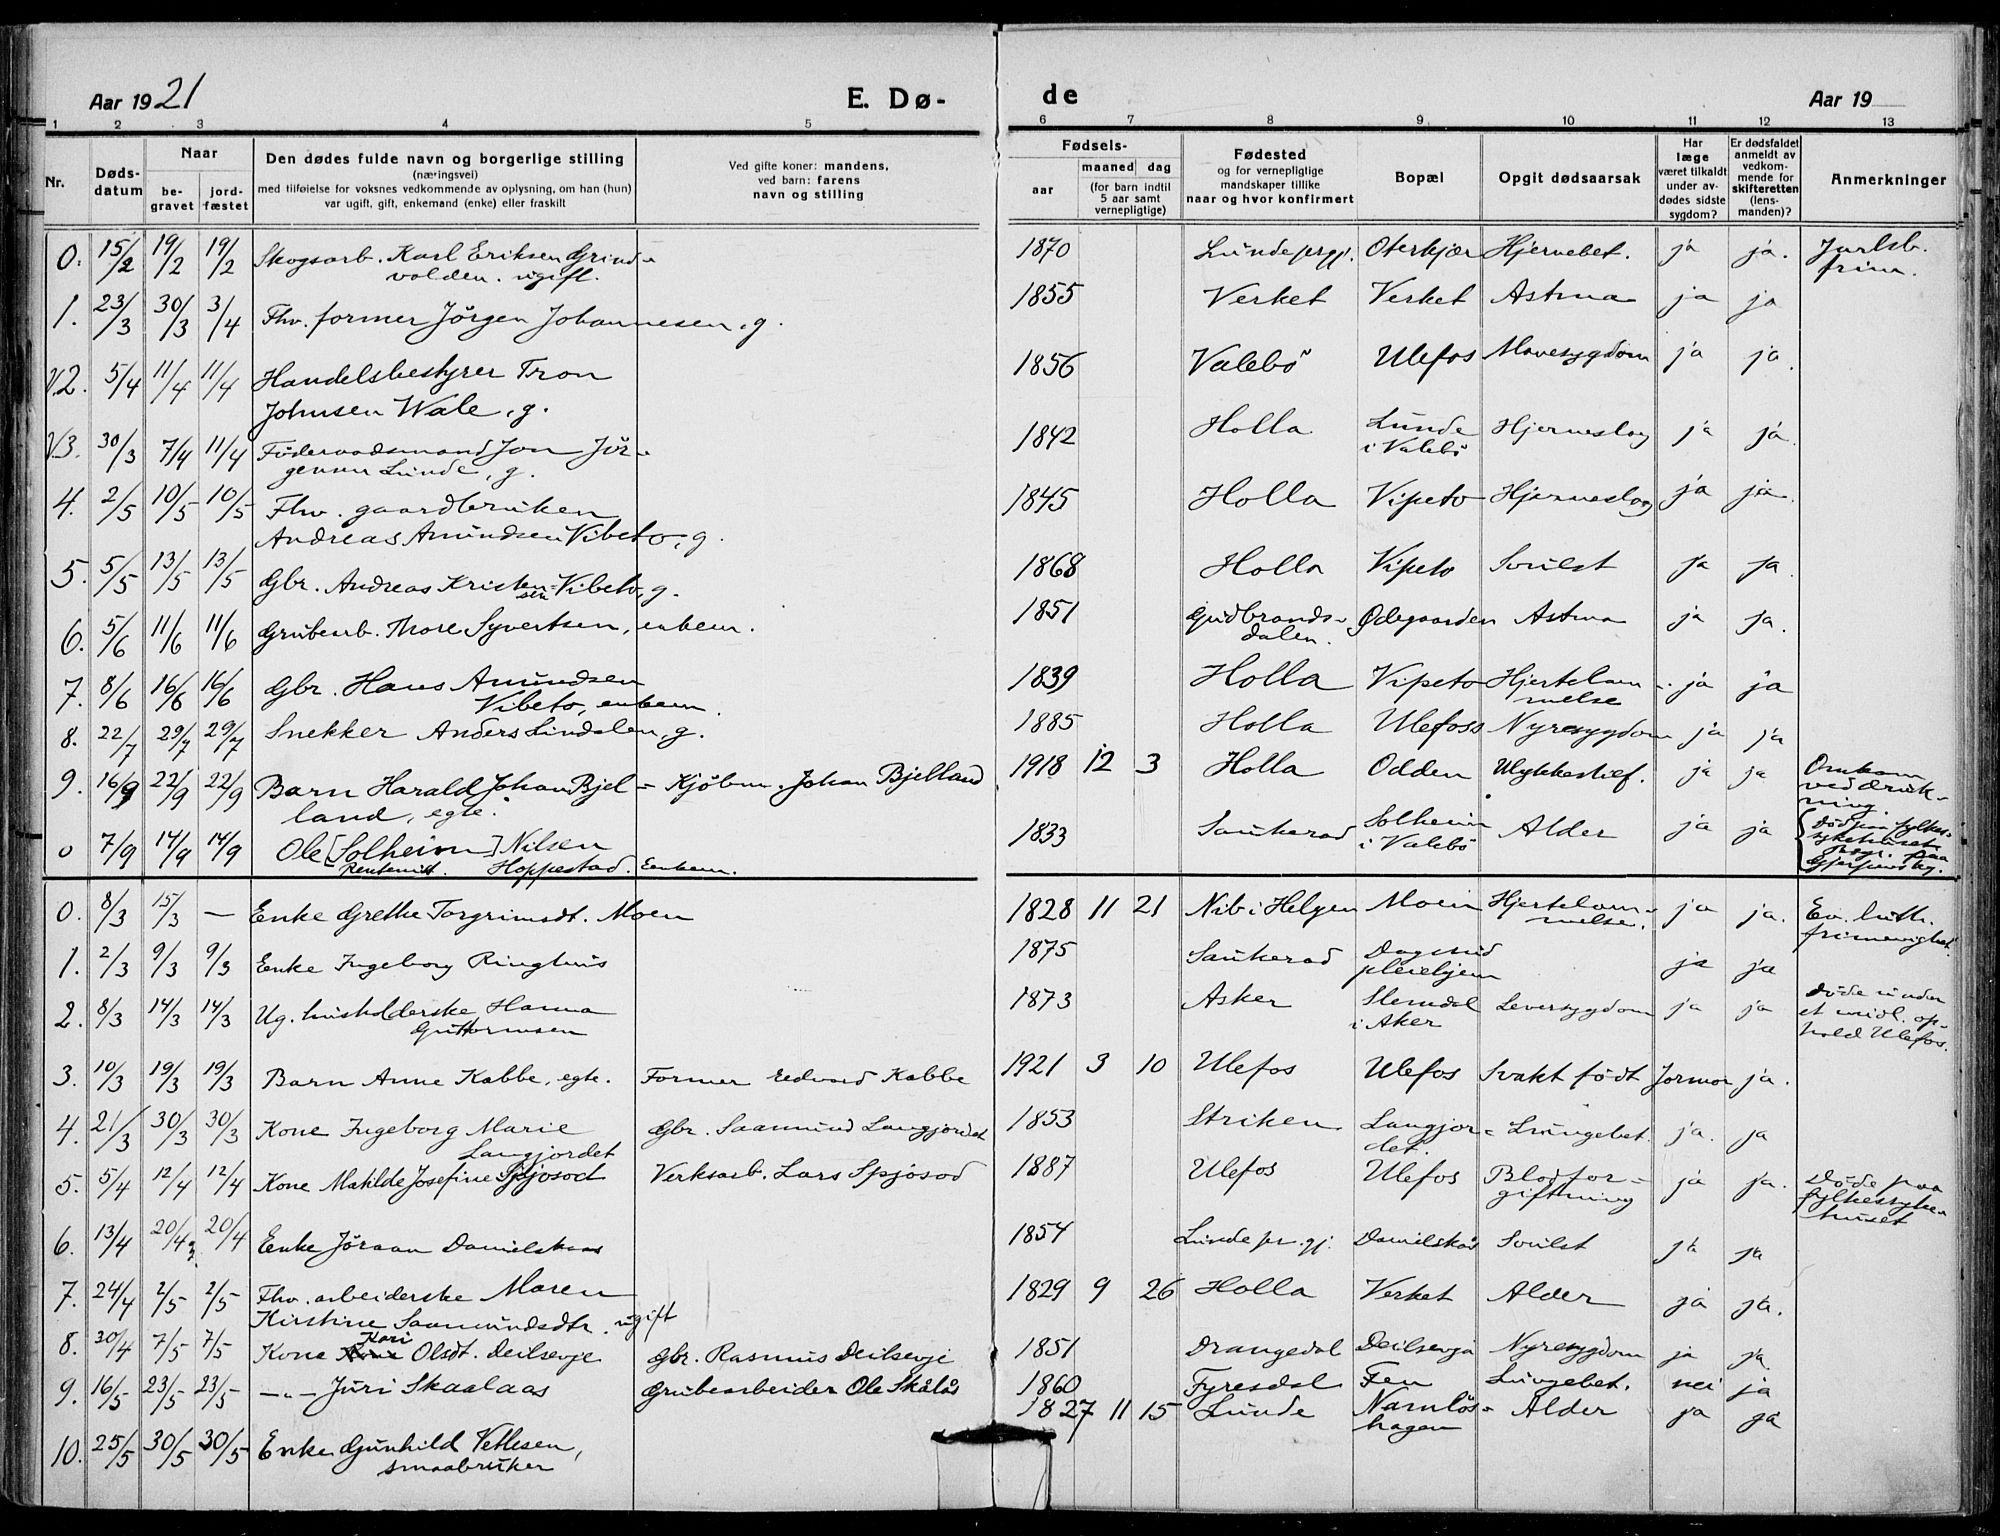 Aar 1921
E. Dø-
de
Aar 19
1 2 3 4 5 6 7 8 9 10 11 12 13
Nr.
Døds-
datum
Naar
be-
gravet
jord-
fæstet
Den dødes fulde navn og borgerlige stilling
(næringsvei)
med tilføielse for voksnes vedkommende av oplysning, om han (hun)
var ugift, gift, enkemand (enke) eller fraskilt
Ved gifte koner: mandens,
ved barn: farens
navn og stilling
Fødsels-
aar
maaned dag
(for barn indtil
5 aar samt
vernepligtige)
Fødested
og for vernepligtige
mandskaper tillike
naar og hvor konfirmert
Bopæl
Opgit dødsaarsak
Har
læge
været tilkaldt
under av-
dødes sidste
sygdom?
Er dødsfaldet
anmeldt av
vedkom-
mende for
skifteretten
(lens-
manden)?
Anmerkninger
0. 15/2 19/2 19/2 Skogsarb. Karl Eriksen Grind- 1870 Lunde prgj. Oterkjær Hjernebet. ja ja. Jarlsb.
volden. ugift. frim.
1. 23/3 30/3 3/4 Fhv. former Jörgen Johannesen, g. 1855 Verket Verket Astma ja ja
V.2. 5/4 11/4 11/4 Handelsbestyrer Tron 1856 Valebö Ulefos Mavesygdom ja ja.
Johnsen Wale, g.
V.3. 30/3 7/4 11/4 Föderaadsmand Jon Jör- 1842 Holla Lunde Hjerneslag ja ja.
gensen Lunde, g. i Valebö
4. 2/5 10/5 10/5 Fhv. gaardbruker 1845 Holla Vipeto Hjerneslag ja ja.
Andreas Amundsen Vibeto, g.
5. 5/5 13/5 13/5 Gbr. Andreas Kristen- Vibeto, g. 1868 Holla Vipeto Svulst ja ja.
sen
6. 5/6 11/6 11/6 Grubearb. Thore Syvertsen, enkem. 1851 Gudbrands- Ødegaarden Astma ja ja.
dalen.
7. 8/6 16/6 16/6 Gbr. Hans Amundsen 1839 Holla Vipeto Hjertelam- ja ja
Vibeto, enkem. melse
8. 22/7 29/7 29/7 Snekker Anders Lindalen, g. 1885 Holla Ulefoss Nyresygdom ja ja
9. 16/9 22/9 22/9 Barn Harald Johan Bjel- Kjöbm. Johan Bjelland 1918 12 3 Holla Odden Ulykkestilf. ja ja Omkom
land, egte. ved druk-
ning.
0 7/9 14/9 14/9 Ole [Solheim] Nilsen 1833 Saukerad Solheim Alder ja ja Död paa fylkes-
Rentenist. Hoppestad. Enkem. i Valebö sykehuset
paa
0. 8/3 15/3 — Enke Grethe Torgrimsdt. Moen 1828 11 21 Nib i Helgen Moen Hjertelam- ja ja. Ev. luth.
melse. frimenighet.
1. 2/3 9/3 9/3 Enke Ingeborg Ringhus 1875 Saukerad Dagsrud ja ja
pleiehjem
2. 8/3 14/3 14/3 Ug. husholderske Hanna 1873 Asker Slemdal Leversygdom ja ja Döde under
Guttormsen i Aker et midl. op-
hold Ulefos.
3. 10/3 19/3 19/3 Barn Anne Kabbe, egte. Former Edvard Kabbe 1921 3 10 Ulefos Ulefos Svakt födt Jormor ja.
4. 21/3 30/3 30/3 Kone Ingeborg Marie Gbr. Saamund Langjordet 1853 Striken Langjor- Lungebet. ja. ja
Langjordet det.
5. 5/4 12/4 12/4 Kone Matilde Josefine Spjosod Verksarb. Lars Spjösod 1887 Ulefos Ulefos Blodfor- ja ja. Döde paa
giftning fylkessyke-
huset
6. 13/4 20/4 20/4 Enke Jöraan Danielskaas 1854 Lunde pr.gj. Danielskås Svulst ja ja
7. 24/4 2/5 2/5 Fhv. arbeiderske Maren 1829 9 26 Holla Verket Alder ja ja.
Kirstine Saamundsdtr. ugift
8. 30/4 7/5 7/5 Kone Kari Olsdt. Deilsevje Gbr. Rasmus Deilsevje 1851 Drangedal Deilsevja Nyresygdom ja ja.
9. 16/5 23/5 23/5 —"— Juri Skaalaas Grubearbeider Ole Skålås 1860 Fyresdal Fen Lungebet. nei ja
10. 25/5 30/5 30/5 Enke Gunhild Vetlesen, 1827 11 15 Lunde Namlös- Alder ja ja
smaabruker hagen